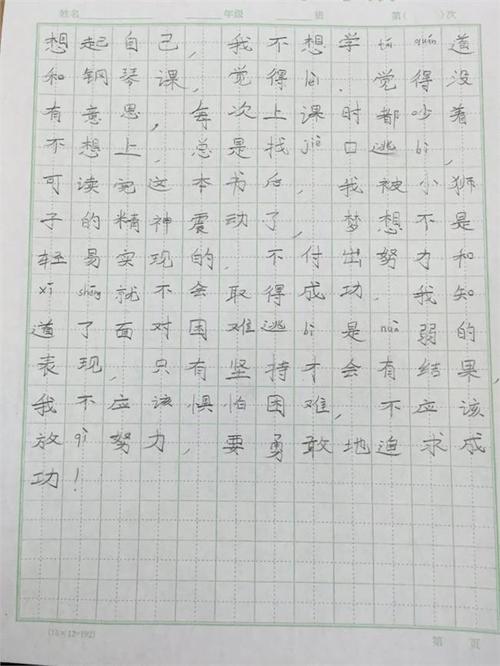 姓名 年级 班 第( )次
想起自己，我不想学tái quán道
和钢琴课，觉得lèi．觉得没
有意思，每次上课时都吵着
不想上，总是找jiè口逃bì，
可读完这本书后，我被小狮
子的精神震动了，梦想不是
轻易实现的．不付出努力和
xī shēng就不会取得成功．我知
道了面对困难逃bì是nuò弱的
表现，只有坚持才会有结果，
我不应该惧怕困难，不应该
放qì努力，要勇敢地追求成
功！
(15×12=192)
第 页